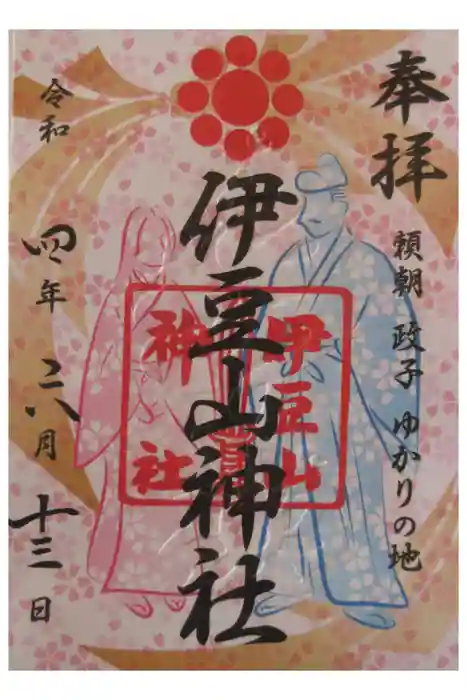 奉拝
頼朝 政子 ゆかりの地
伊豆山神社
伊豆山
神社
令和四年六月十三日